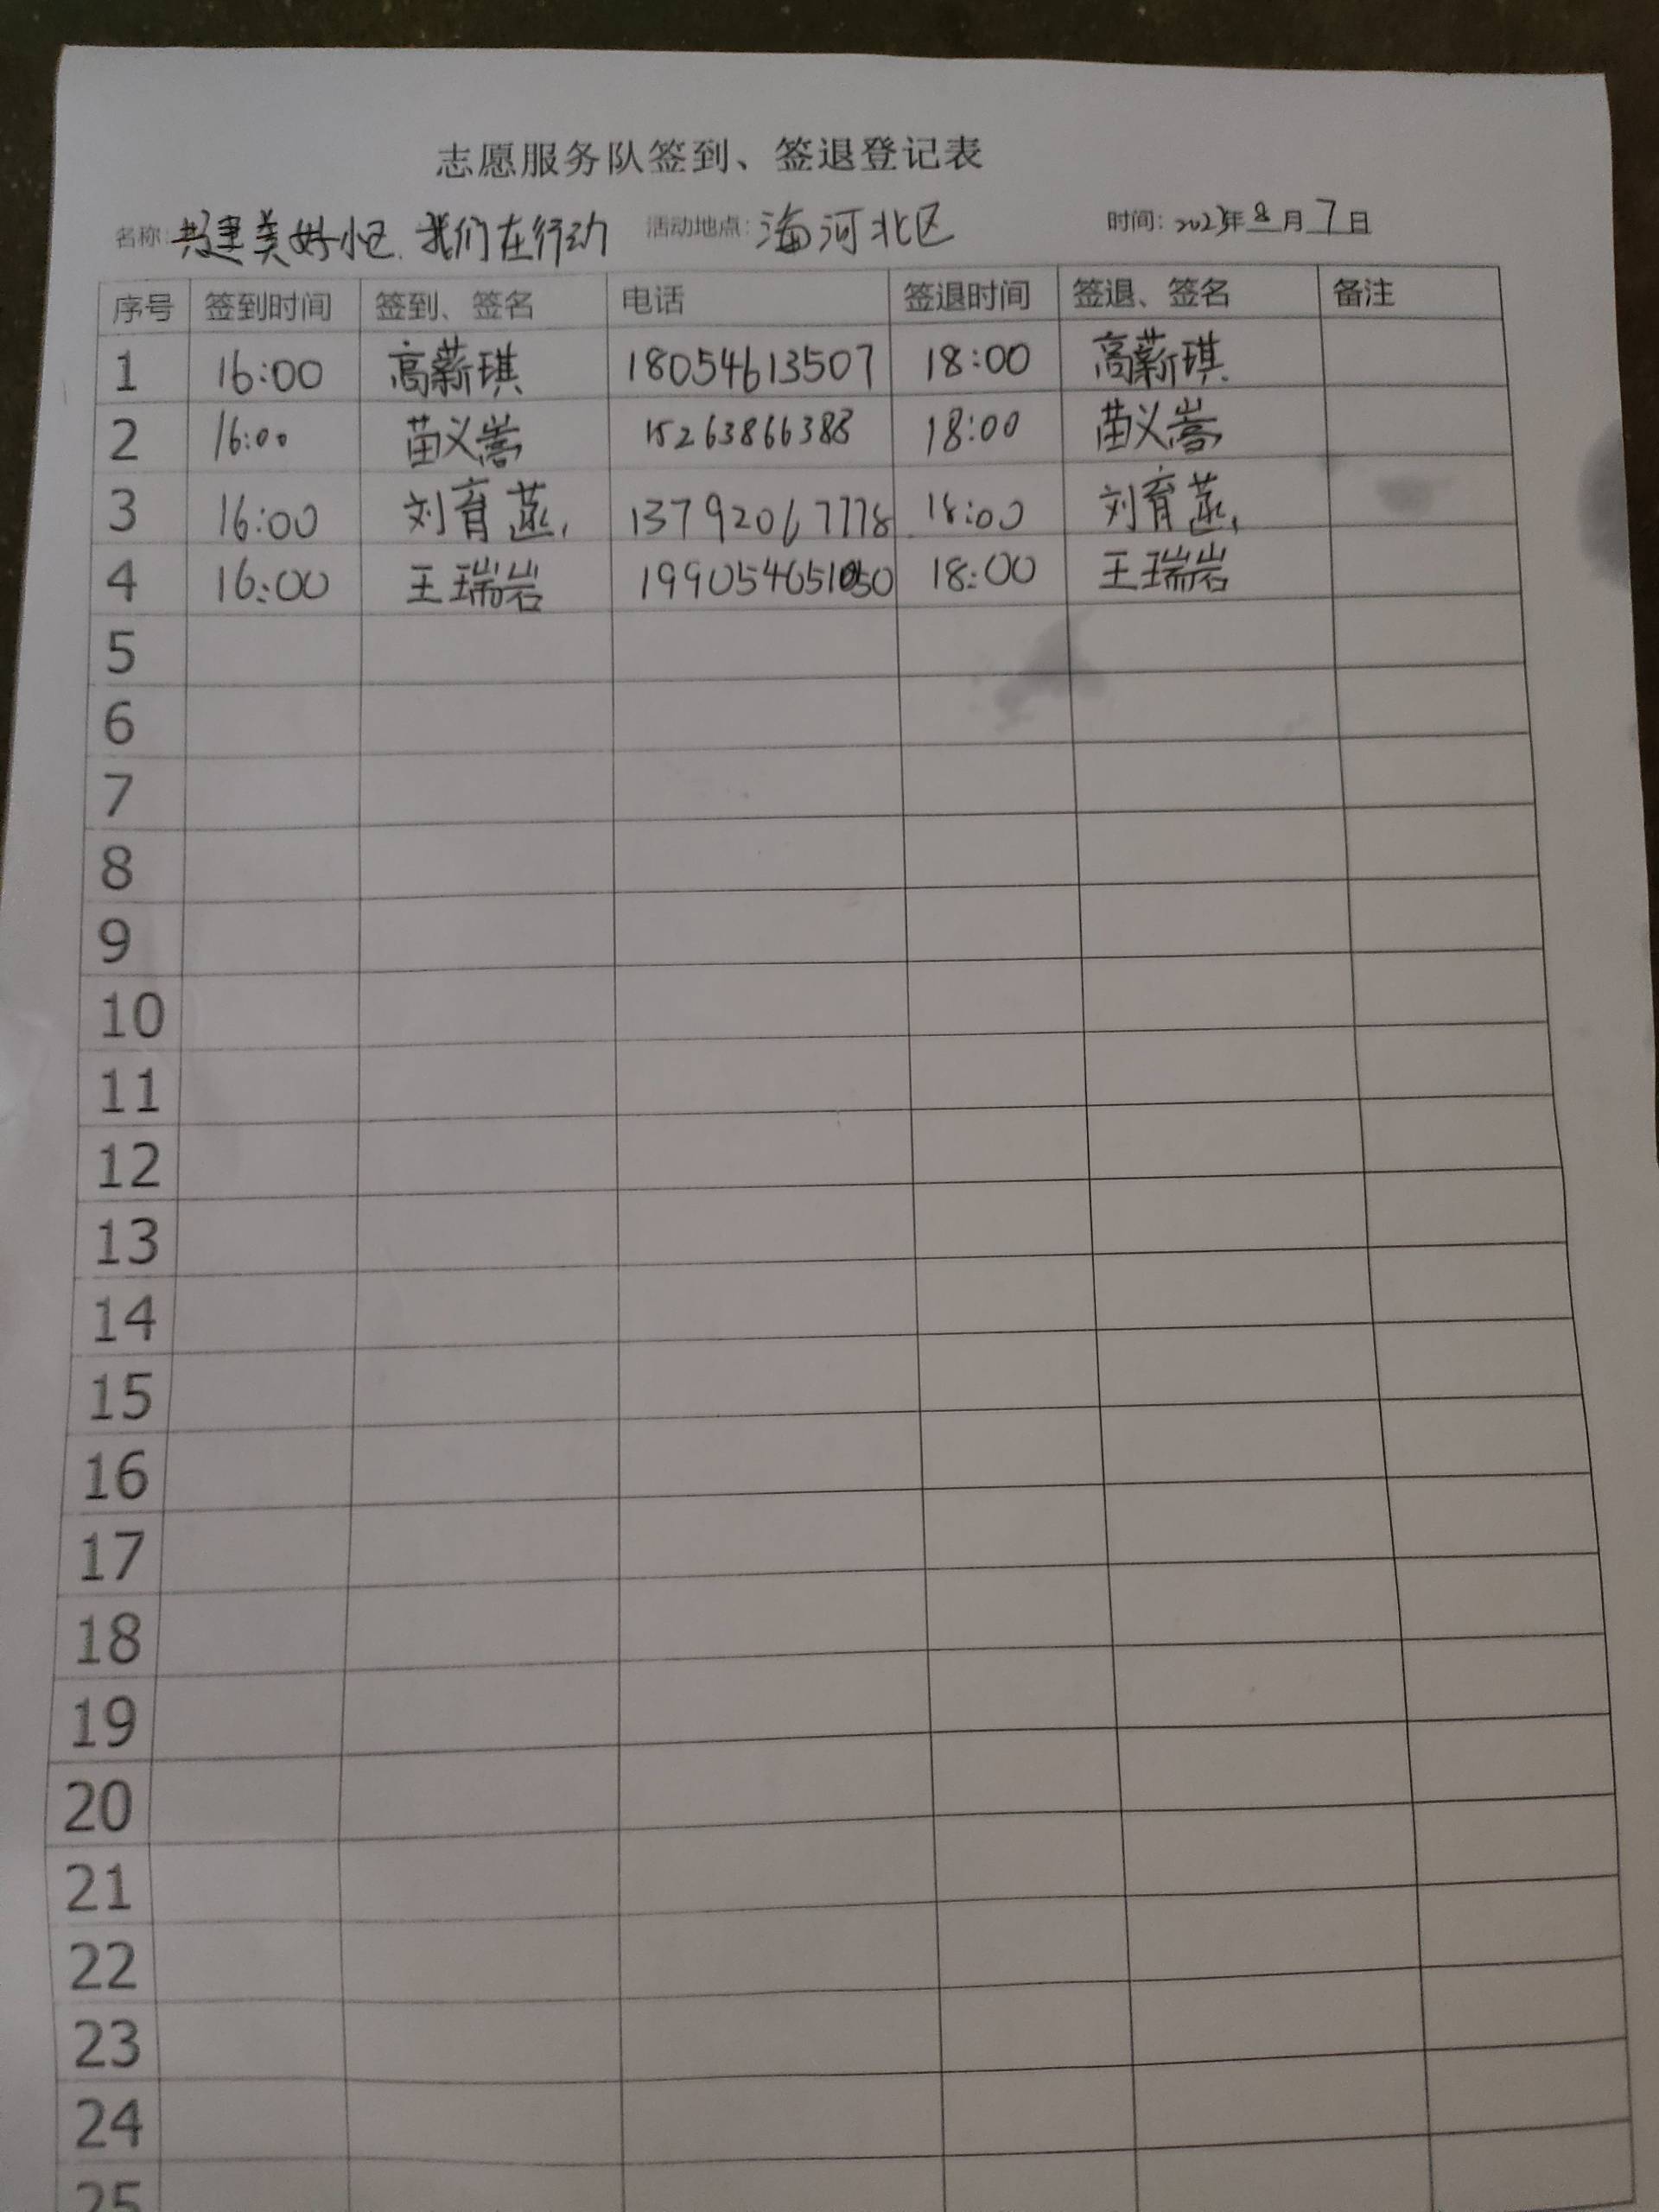 志愿服务队签到、签退登记表
名称: 共建美好小区 我们在行动 活动地点: 海河北区 时间: 2023年8月7日
序号 签到时间 签到、签名 电话 签退时间 签退、签名 备注
1 16:00 高薪琪 18054613507 18:00 高薪琪
2 16:00 苗义嵩 15263866388 18:00 苗义嵩
3 16:00 刘育 13792067778 18:00 刘育
4 16:00 王瑞岩 18:00 王瑞岩
5
6
7
8
9
10
11
12
13
14
15
16
17
18
19
20
21
22
23
24
25